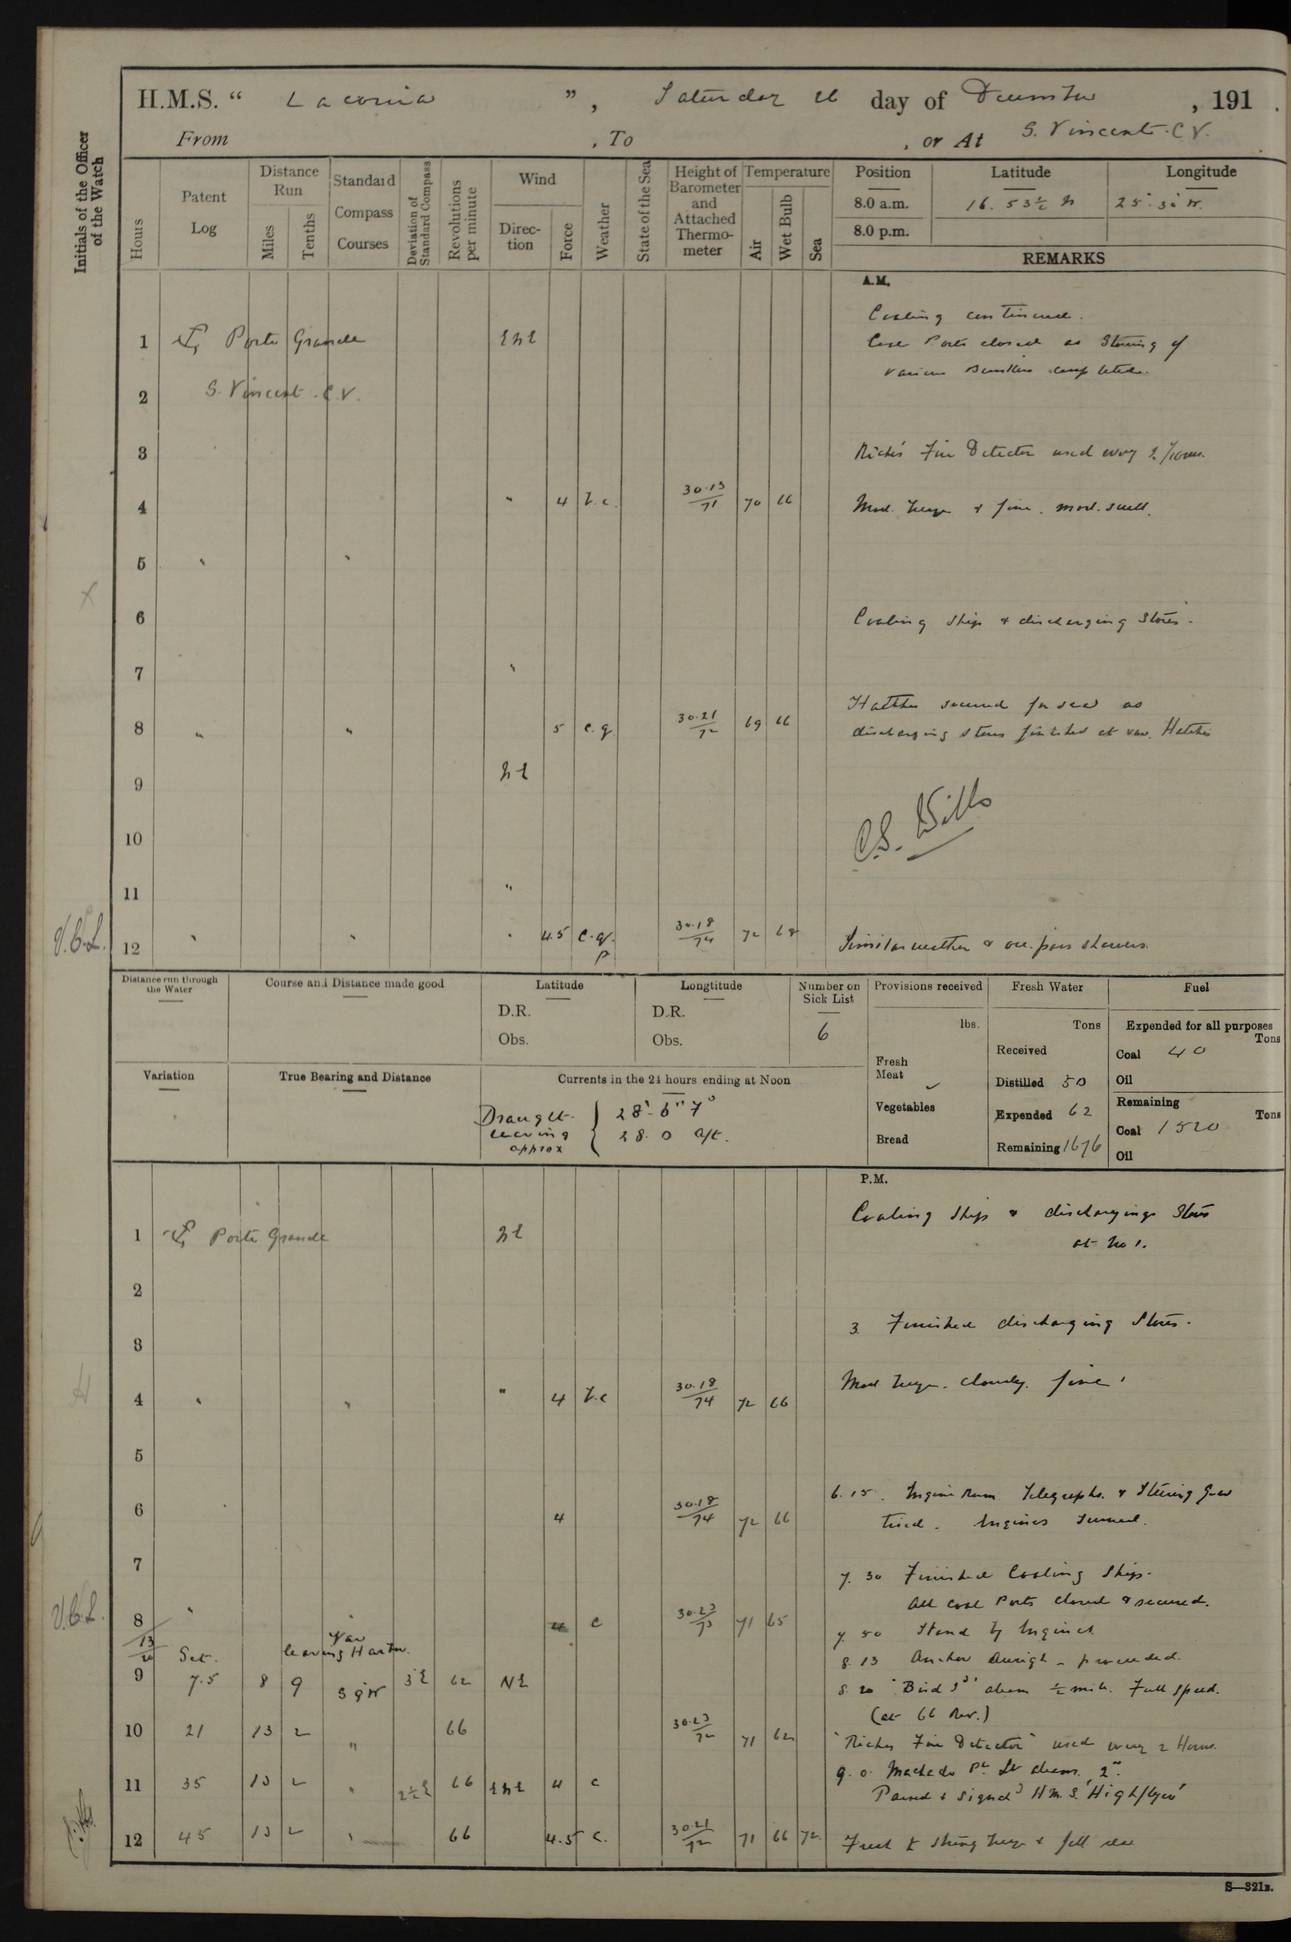 H.M.S. “ Laconia ”, Saturday 26 day of December, 191 .
From , To , or At S. Vincent. C.V.
Initials of the Officer of the Watch
Hours
Patent Log
Distance Run
Miles
Tenths
Standard Compass Courses
Deviation of Standard Compass
Revolutions per minute
Wind
Direction
Force
Weather
State of the Sea
Height of Barometer and Attached Thermometer
Temperature
Air
Wet Bulb
Sea
Position Latitude Longitude
8.0 a.m. 16. 53½ N 25. 3 W.
8.0 p.m.
REMARKS
A.M.
Coaling continued.
1 Porto Grande ENE
Coal Ports closed as Stowing of
various Bunkers completed.
2 S. Vincent. C.V.
3 Riches Fire Detector used every 2 hours.
4 " 4 b.c. 30.13/71 70 66 Mod. breeze & fine. mod. swell.
5 " "
6 Coaling Ship & discharging Stores.
7 "
Hatches secured for sea as
8 " " 5 c.q. 30.21/72 69 66 discharging stores finished at var. Hatches
9 NE
C.S. Wills
10
11 "
V.C.L. 12 " " " 4.5 c.q. p 30.18/74 72 68 Similar weather & occ. pass showers.
Distance run through the Water
Course and Distance made good
Latitude
D.R.
Obs.
Longtitude
D.R.
Obs.
Number on Sick List
6
Provisions received
lbs.
Fresh Meat
Vegetables
Bread
Fresh Water
Tons
Received
Distilled 50
Expended 62
Remaining 1676
Fuel
Expended for all purposes
Tons
Coal 40
Oil
Remaining
Tons
Coal 1520
Oil
Variation
True Bearing and Distance
Currents in the 24 hours ending at Noon
Draught 28' 6" F
leaving 28. 0 aft.
approx
P.M.
Coaling Ship & discharging Stores
1 Porto Grande NE
at No 1.
2
3. Finished discharging Stores.
3
Mod breeze. cloudy. fine.
4 " " " 4 b.c 30.18/74 72 66
5
6.15. Engine Room Telegraphs. & Steering Gear
6 4 30.18/74 72 66 tried. Engines turned.
7
7.30 Finished Coaling Ship.
All Coal Ports closed & secured.
V.C.L. 8 " " 4 c 30.23/73 71 65
7.50 Stand by Engines
13/20 Set. Var leaving Harbr.
8.13 Anchor Aweigh & proceeded.
9 7.5 8 9 S 9 W 3 E 62 NE
8.20 "Bird Id" abeam ½ mile. Full speed.
(at 66 Rev.)
10 21 13 2 " 66 30.23/72 71 62
"Riches Fire Detector" used every 2 Hours.
9.0. Machado Pt. Lt abeam. 2".
11 35 13 2 " 2½E 66 ENE 4 c
Passed & signd H.M.S. 'Highflyer'
12 45 13 2 " 66 4.5 c. 30.21/72 71 66 72. Fresh to strong breeze & foll sea
S—321B.